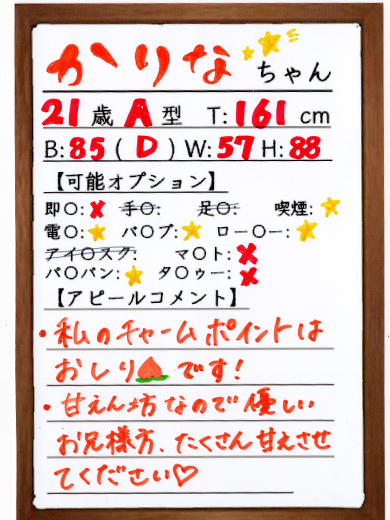 かりなちゃん
21歳 A型 T:161cm
B:85(D)W:57H:88
【可能オプション】
即〇:✖ 手〇: 足〇: 喫煙:★
電〇:★ バ〇ブ:★ ロー〇ー:★
アイ〇スク: マ〇ト:✖
パ〇パン:★ タ〇ゥー:✖
【アピールコメント】
・私のチャームポイントは
おしり🍑です!
・甘えん坊なので優しい
お兄様方、たくさん甘えさせ
てください♡